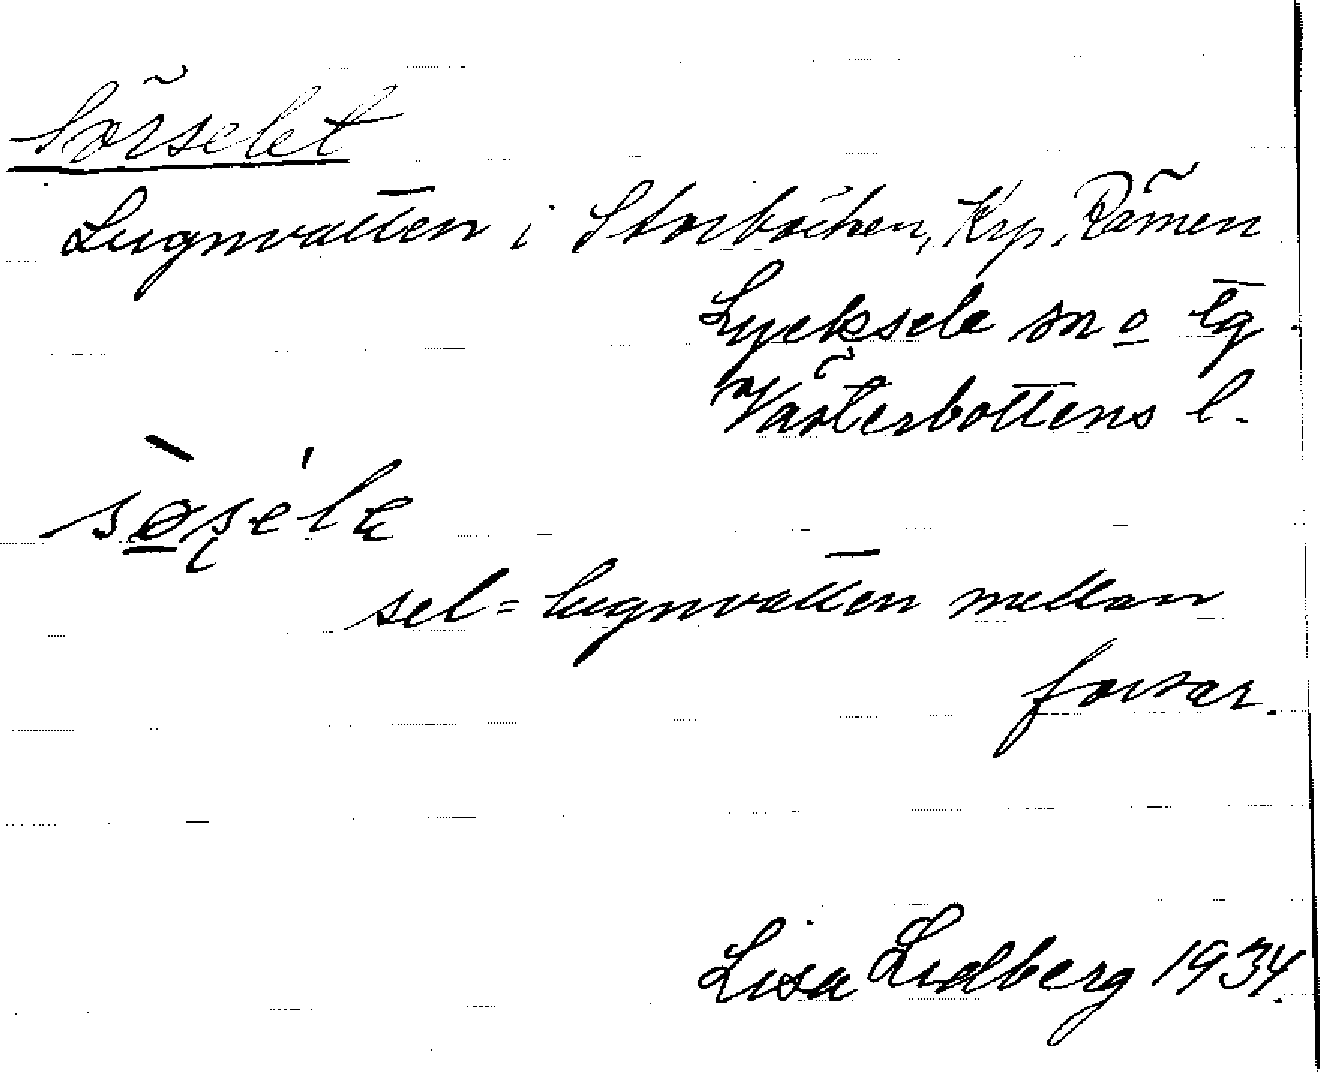 Sörselet
Lugnvatten i Storbäcken, Krp, Rämen
Lycksele sn o lg.
Västerbottens l.
sel = lugnvatten mellan
forsar.
Lisa Lidberg 1934.